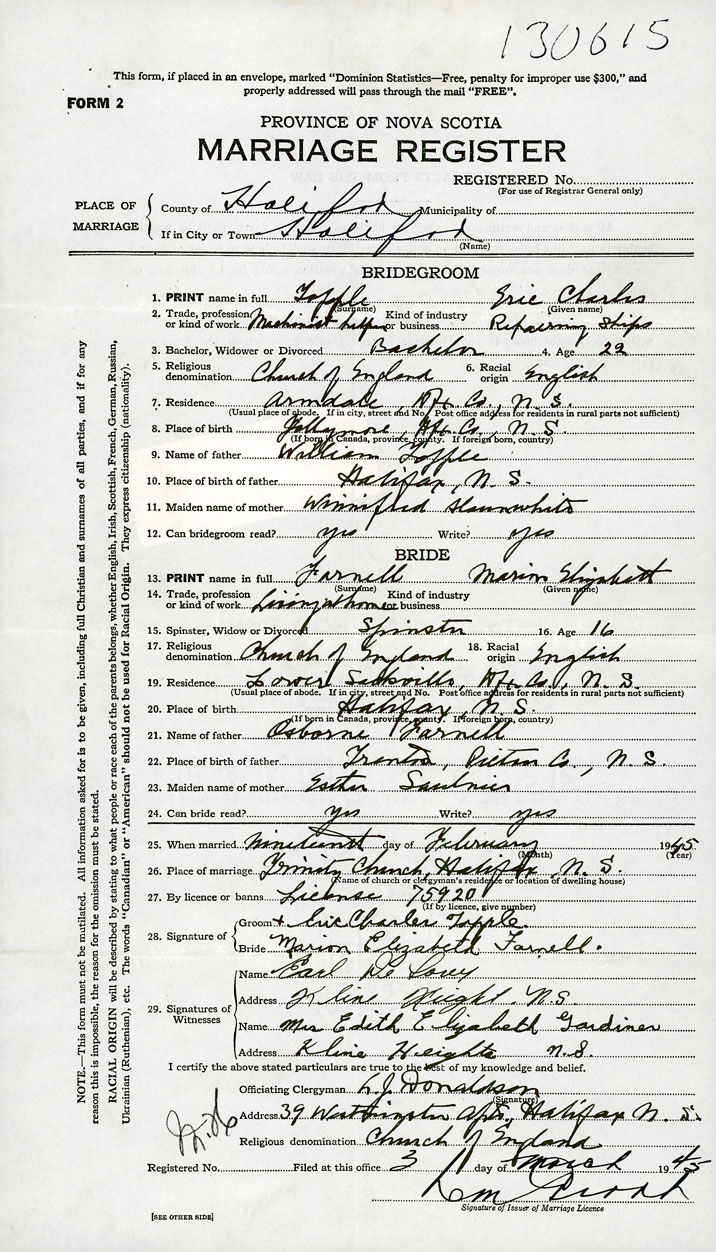 130615
This form, if placed in an envelope, marked "Dominion Statistics—Free, penalty for improper use $300," and
properly addressed will pass through the mail "FREE".
FORM 2
PROVINCE OF NOVA SCOTIA
MARRIAGE REGISTER
REGISTERED No.
(For use of Registrar General only)
PLACE OF MARRIAGE
County of Halifax Municipality of
If in City or Town Halifax
(Name)
BRIDEGROOM
1. PRINT name in full Topple Eric Charles
(Surname) (Given name)
2. Trade, profession or kind of work Machinist helper Kind of industry or business Repairing Ships
3. Bachelor, Widower or Divorced Bachelor 4. Age 22
5. Religious denomination Church of England 6. Racial origin English
7. Residence Armdale, Hfx. Co., N. S.
(Usual place of abode. If in city, street and No. Post office address for residents in rural parts not sufficient)
8. Place of birth Jollymore, Hfx. Co., N. S
(If born in Canada, province, county. If foreign born, country)
9. Name of father William Topple
10. Place of birth of father Halifax, N. S.
11. Maiden name of mother Winnifred Slaunwhite
12. Can bridegroom read? yes Write? yes
BRIDE
13. PRINT name in full Farnell Marion Elizabeth
(Surname) (Given name)
14. Trade, profession or kind of work Living at home Kind of industry or business
15. Spinster, Widow or Divorced Spinster 16. Age 16
17. Religious denomination Church of England 18. Racial origin English
19. Residence Lower Sackville, Hfx. Co., N. S.
(Usual place of abode. If in city, street and No. Post office address for residents in rural parts not sufficient)
20. Place of birth Halifax, N. S.
(If born in Canada, province, county. If foreign born, country)
21. Name of father Osborne Farnell
22. Place of birth of father Trenton, Pictou Co., N. S.
23. Maiden name of mother Esther Saulnier
24. Can bride read? yes Write? yes
25. When married nineteenth day of February 1945
(Month) (Year)
26. Place of marriage Trinity Church, Halifax, N. S.
(Name of church or clergyman's residence or location of dwelling house)
27. By licence or banns License 75920
(If by licence, give number)
28. Signature of
Groom + Eric Charles Topple
Bride Marion Elizabeth Farnell.
29. Signatures of Witnesses
Name Earl
Address Kline Height. N.S.
Name Mrs Edith Elizabeth Gardiner
Address Kline Heights N.S.
I certify the above stated particulars are true to the best of my knowledge and belief.
Officiating Clergyman L. J. Donaldson
(Signature)
Address 39 Apts, Halifax N. S.
Religious denomination Church of England
Registered No. Filed at this office 3 day of March 1945
Signature of Issuer of Marriage Licence
[SEE OTHER SIDE]
NOTE.—This form must not be mutilated. All information asked for is to be given, including full Christian and surnames of all parties, and if for any
reason this is impossible, the reason for the omission must be stated.
RACIAL ORIGIN will be described by stating to what people or race each of the parents belongs, whether English, Irish, Scottish, French, German, Russian,
Ukrainian (Ruthenian), etc. The words "Canadian" or "American" should not be used for Racial Origin. They express citizenship (nationality).